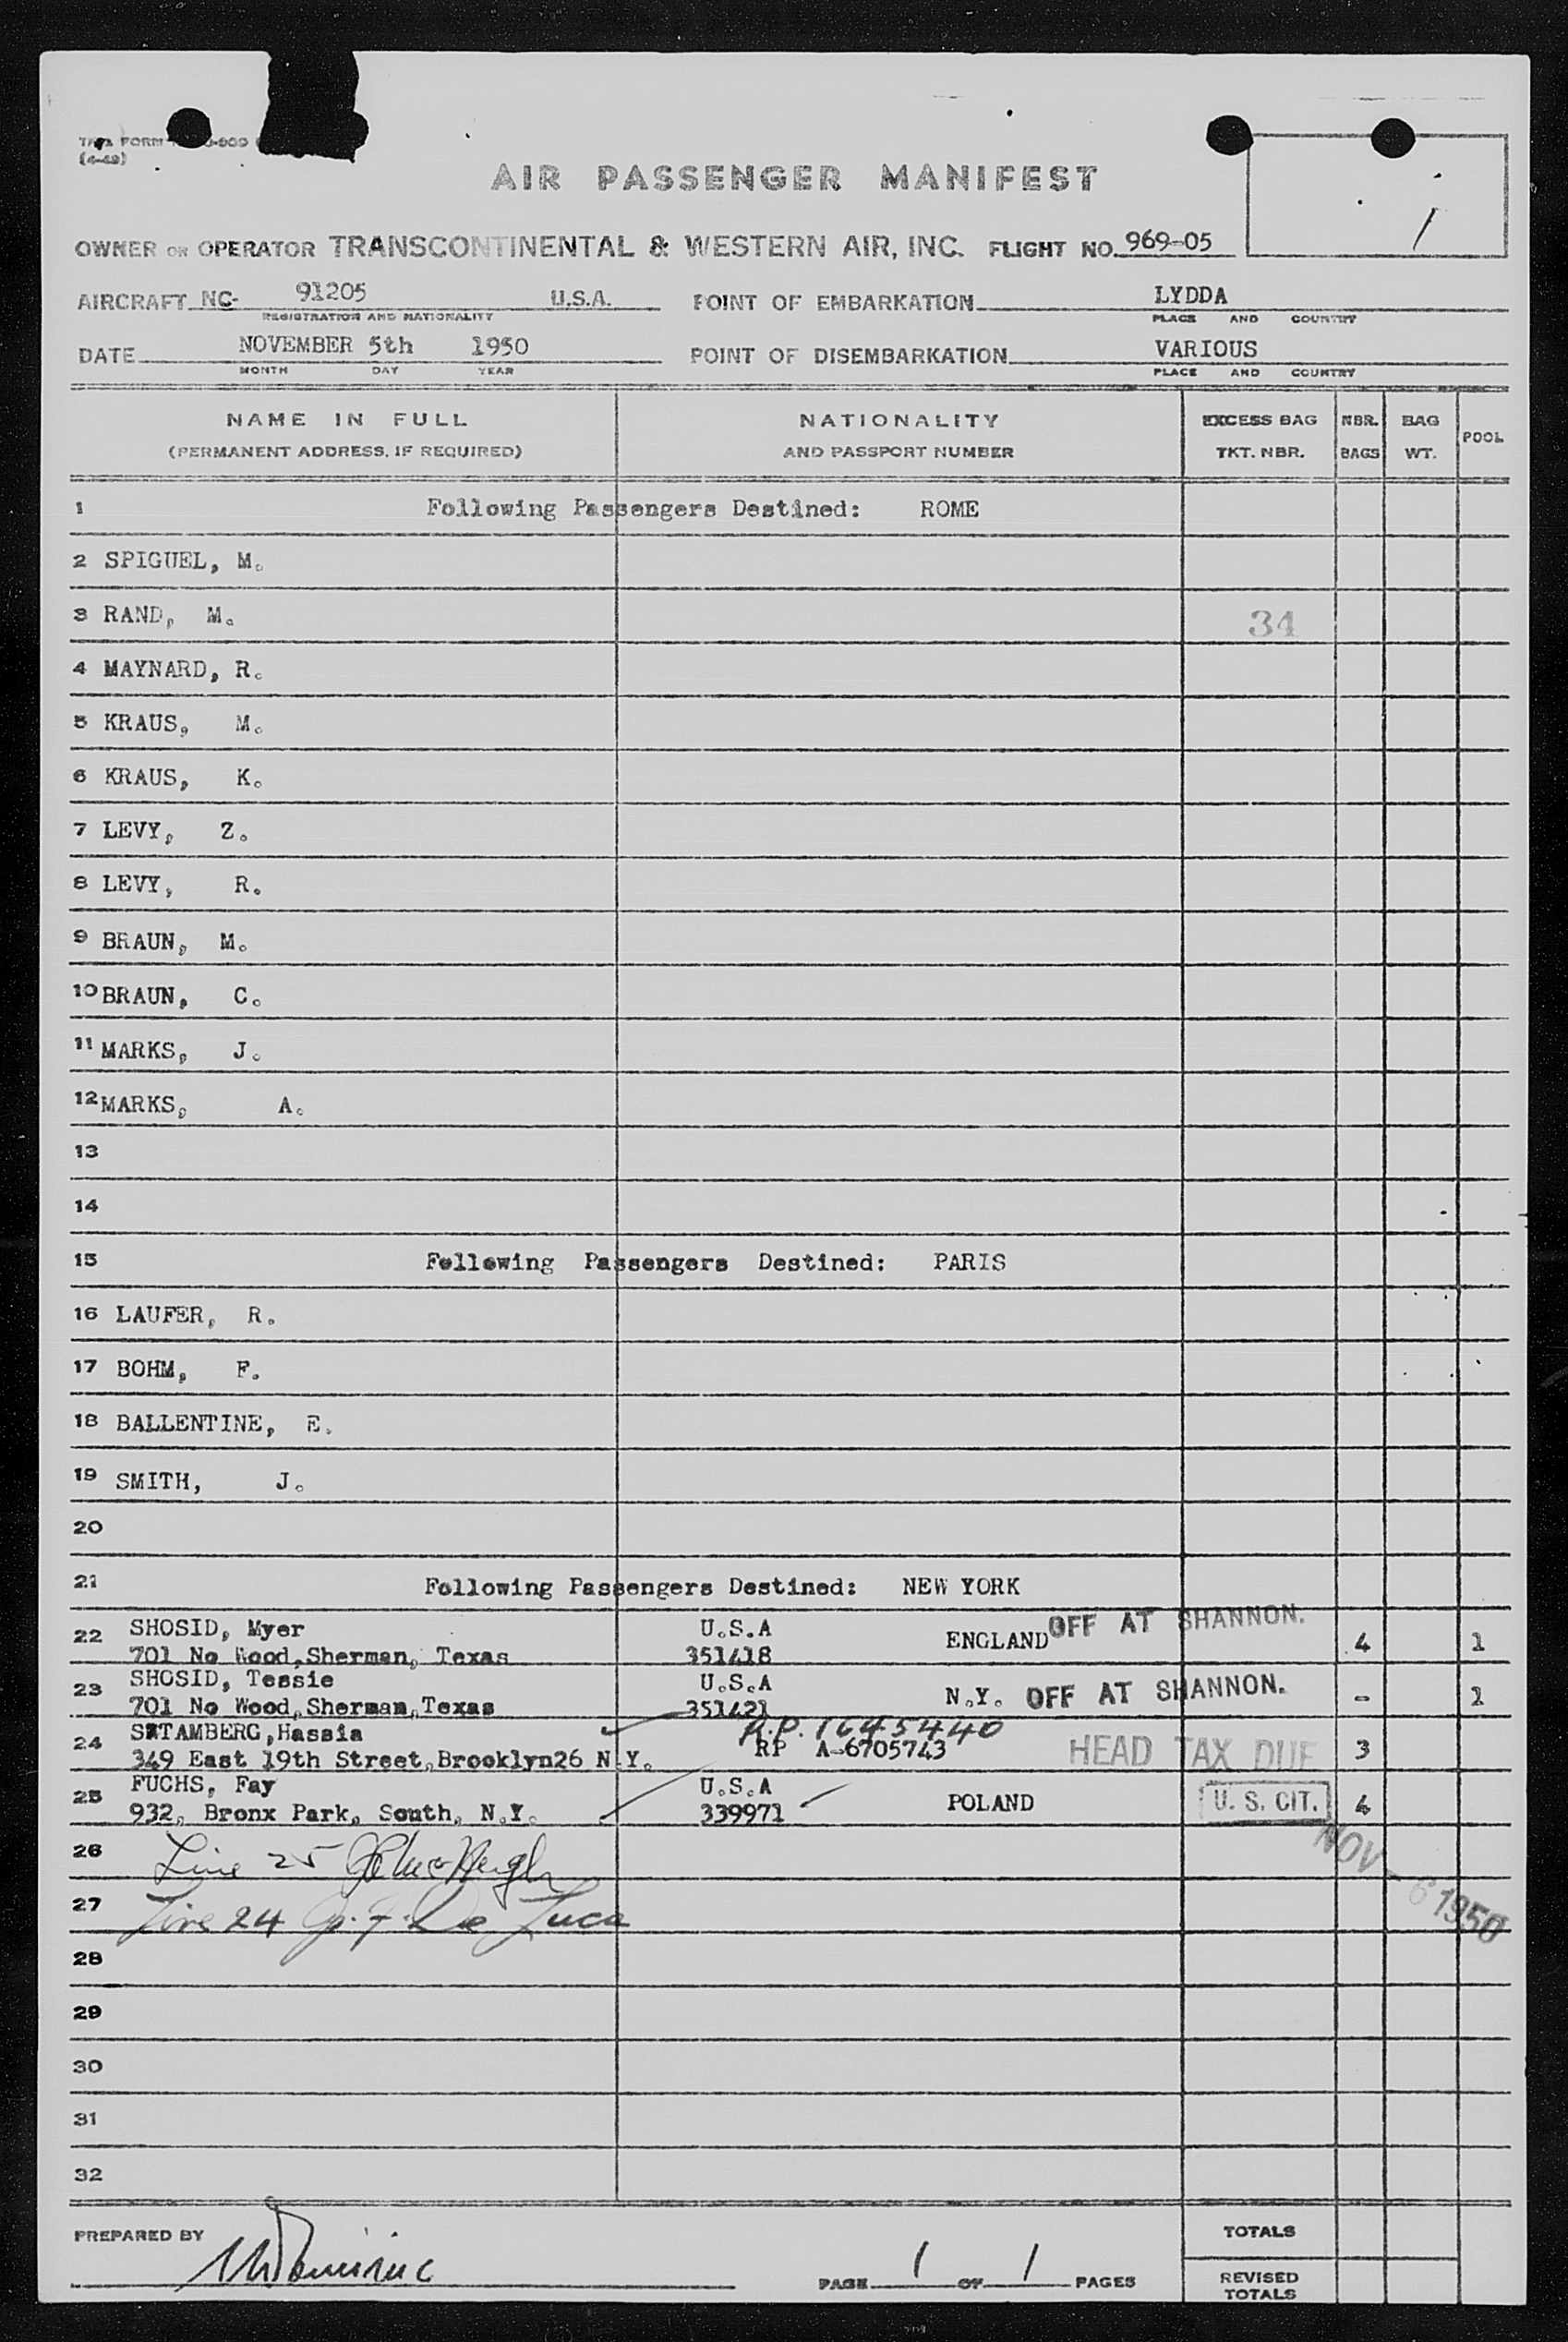 TWA FORM
(4-49)
AIR PASSENGER MANIFEST
/
OWNER OR OPERATOR TRANSCONTINENTAL & WESTERN AIR, INC. FLIGHT NO. 969-05
AIRCRAFT NC- 91205 U.S.A. POINT OF EMBARKATION LYDDA
REGISTRATION AND NATIONALITY PLACE AND COUNTRY
DATE NOVEMBER 5th 1950 POINT OF DISEMBARKATION VARIOUS
MONTH DAY YEAR PLACE AND COUNTRY
NAME IN FULL NATIONALITY EXCESS BAG NBR. BAG POOL
(PERMANENT ADDRESS, IF REQUIRED) AND PASSPORT NUMBER TKT. NBR. BAGS WT.
1 Following Passengers Destined: ROME
2 SPIGUEL, M.
3 RAND, M. 34
4 MAYNARD, R.
5 KRAUS, M.
6 KRAUS, K.
7 LEVY, Z.
8 LEVY, R.
9 BRAUN, M.
10 BRAUN, C.
11 MARKS, J.
12 MARKS, A.
13
14
15 Following Passengers Destined: PARIS
16 LAUFER, R.
17 BOHM, F.
18 BALLENTINE, E.
19 SMITH, J.
20
21 Following Passengers Destined: NEW YORK
22 SHOSID, Myer U.S.A ENGLAND OFF AT SHANNON. 4 1
701 No Wood, Sherman, Texas 351418
23 SHOSID, Tessie U.S.A N.Y. OFF AT SHANNON. - 1
701 No Wood, Sherman, Texas 351421
24 STAMBERG, Hassia R.P. 1645440 HEAD TAX DUE 3
349 East 19th Street, Brooklyn26 N.Y. RP A-6705743
25 FUCHS, Fay U.S.A POLAND U. S. CIT. 4
932, Bronx Park, South, N.Y. 339971
NOV - 6 1950
26 Line 25
27 Line 24 De Luca
28
29
30
31
32
PREPARED BY TOTALS
PAGE 1 OF 1 PAGES REVISED TOTALS